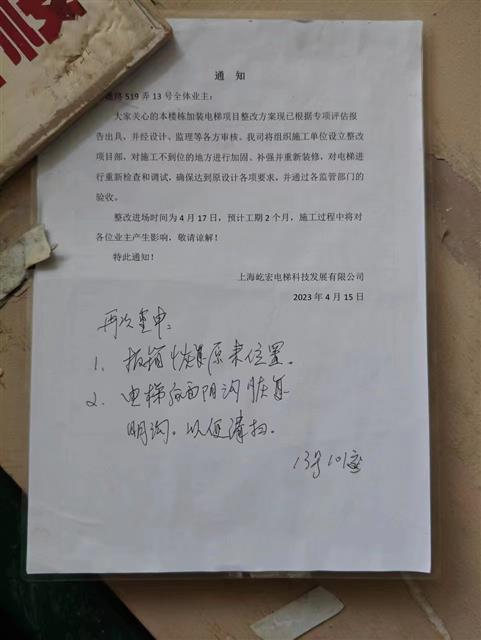 通 知
路 519 弄 13 号全体业主：
大家关心的本楼栋加装电梯项目整改方案现已根据专项评估报
告出具、并经设计、监理等各方审核。我司将组织施工单位设立整改
项目部，对施工不到位的地方进行加固、补强并重新装修，对电梯进
行重新检查和调试，确保达到原设计各项要求，并通过各监管部门的
验收。
整改进场时间为 4 月 17 日，预计工期 2 个月，施工过程中将对
各位业主产生影响，敬请谅解！
特此通知！
上海屹宏电梯科技发展有限公司
2023 年 4 月 15 日
再次重申：
1. 报箱恢复原来位置。
2. 电梯后面阴沟恢复
明沟。以便清扫。
13号101室